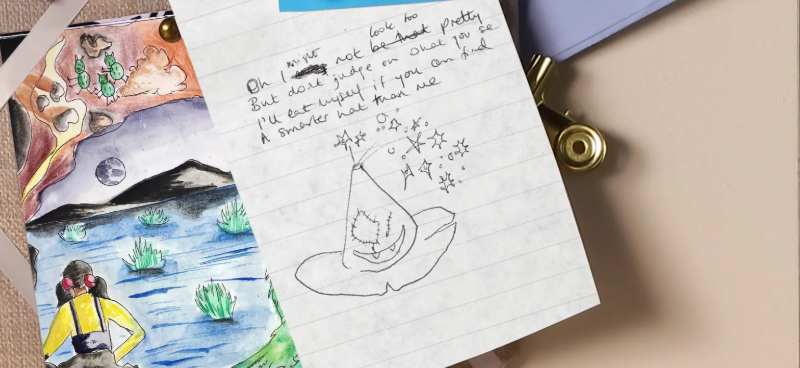 Oh I might not look too Pretty
But dont judge on what you se
I'll eat myself if you can find
A smarter hat than me